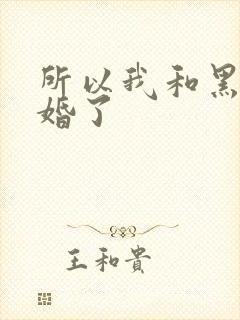 所以我和黑
婚了
王和貴